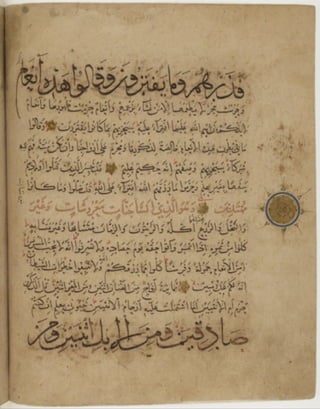 فذرهم وما يفترون وقالوا هذه أنعام
وحرث حجر لا يطعمها إلا من نشاء بزعمهم وأنعام حرمت ظهورها وأنعام
لا يذكرون اسم الله عليها افتراء عليه سيجزيهم بما كانوا يفترون وقالوا
ما في بطون هذه الأنعام خالصة لذكورنا ومحرم على أزواجنا وإن يكن ميتة فهم
فيه شركاء سيجزيهم وصفهم إنه حكيم عليم قد خسر الذين قتلوا أولادهم
سفها بغير علم وحرموا ما رزقهم الله افتراء على الله قد ضلوا وما كانوا
مهتدين وهو الذي أنشأ جنات معروشات وغير
معروشات والنخل والزرع مختلفا أكله والزيتون والرمان متشابها وغير متشابه
كلوا من ثمره إذا أثمر وآتوا حقه يوم حصاده ولا تسرفوا إنه لا يحب المسرفين
ومن الأنعام حمولة وفرشا كلوا مما رزقكم الله ولا تتبعوا خطوات الشيطان
إنه لكم عدو مبين ثمانية أزواج من الضأن اثنين ومن المعز اثنين قل آلذكرين
حرم أم الأنثيين أما اشتملت عليه أرحام الأنثيين نبئوني بعلم إن كنتم
صادقين ومن الإبل اثنين ومن